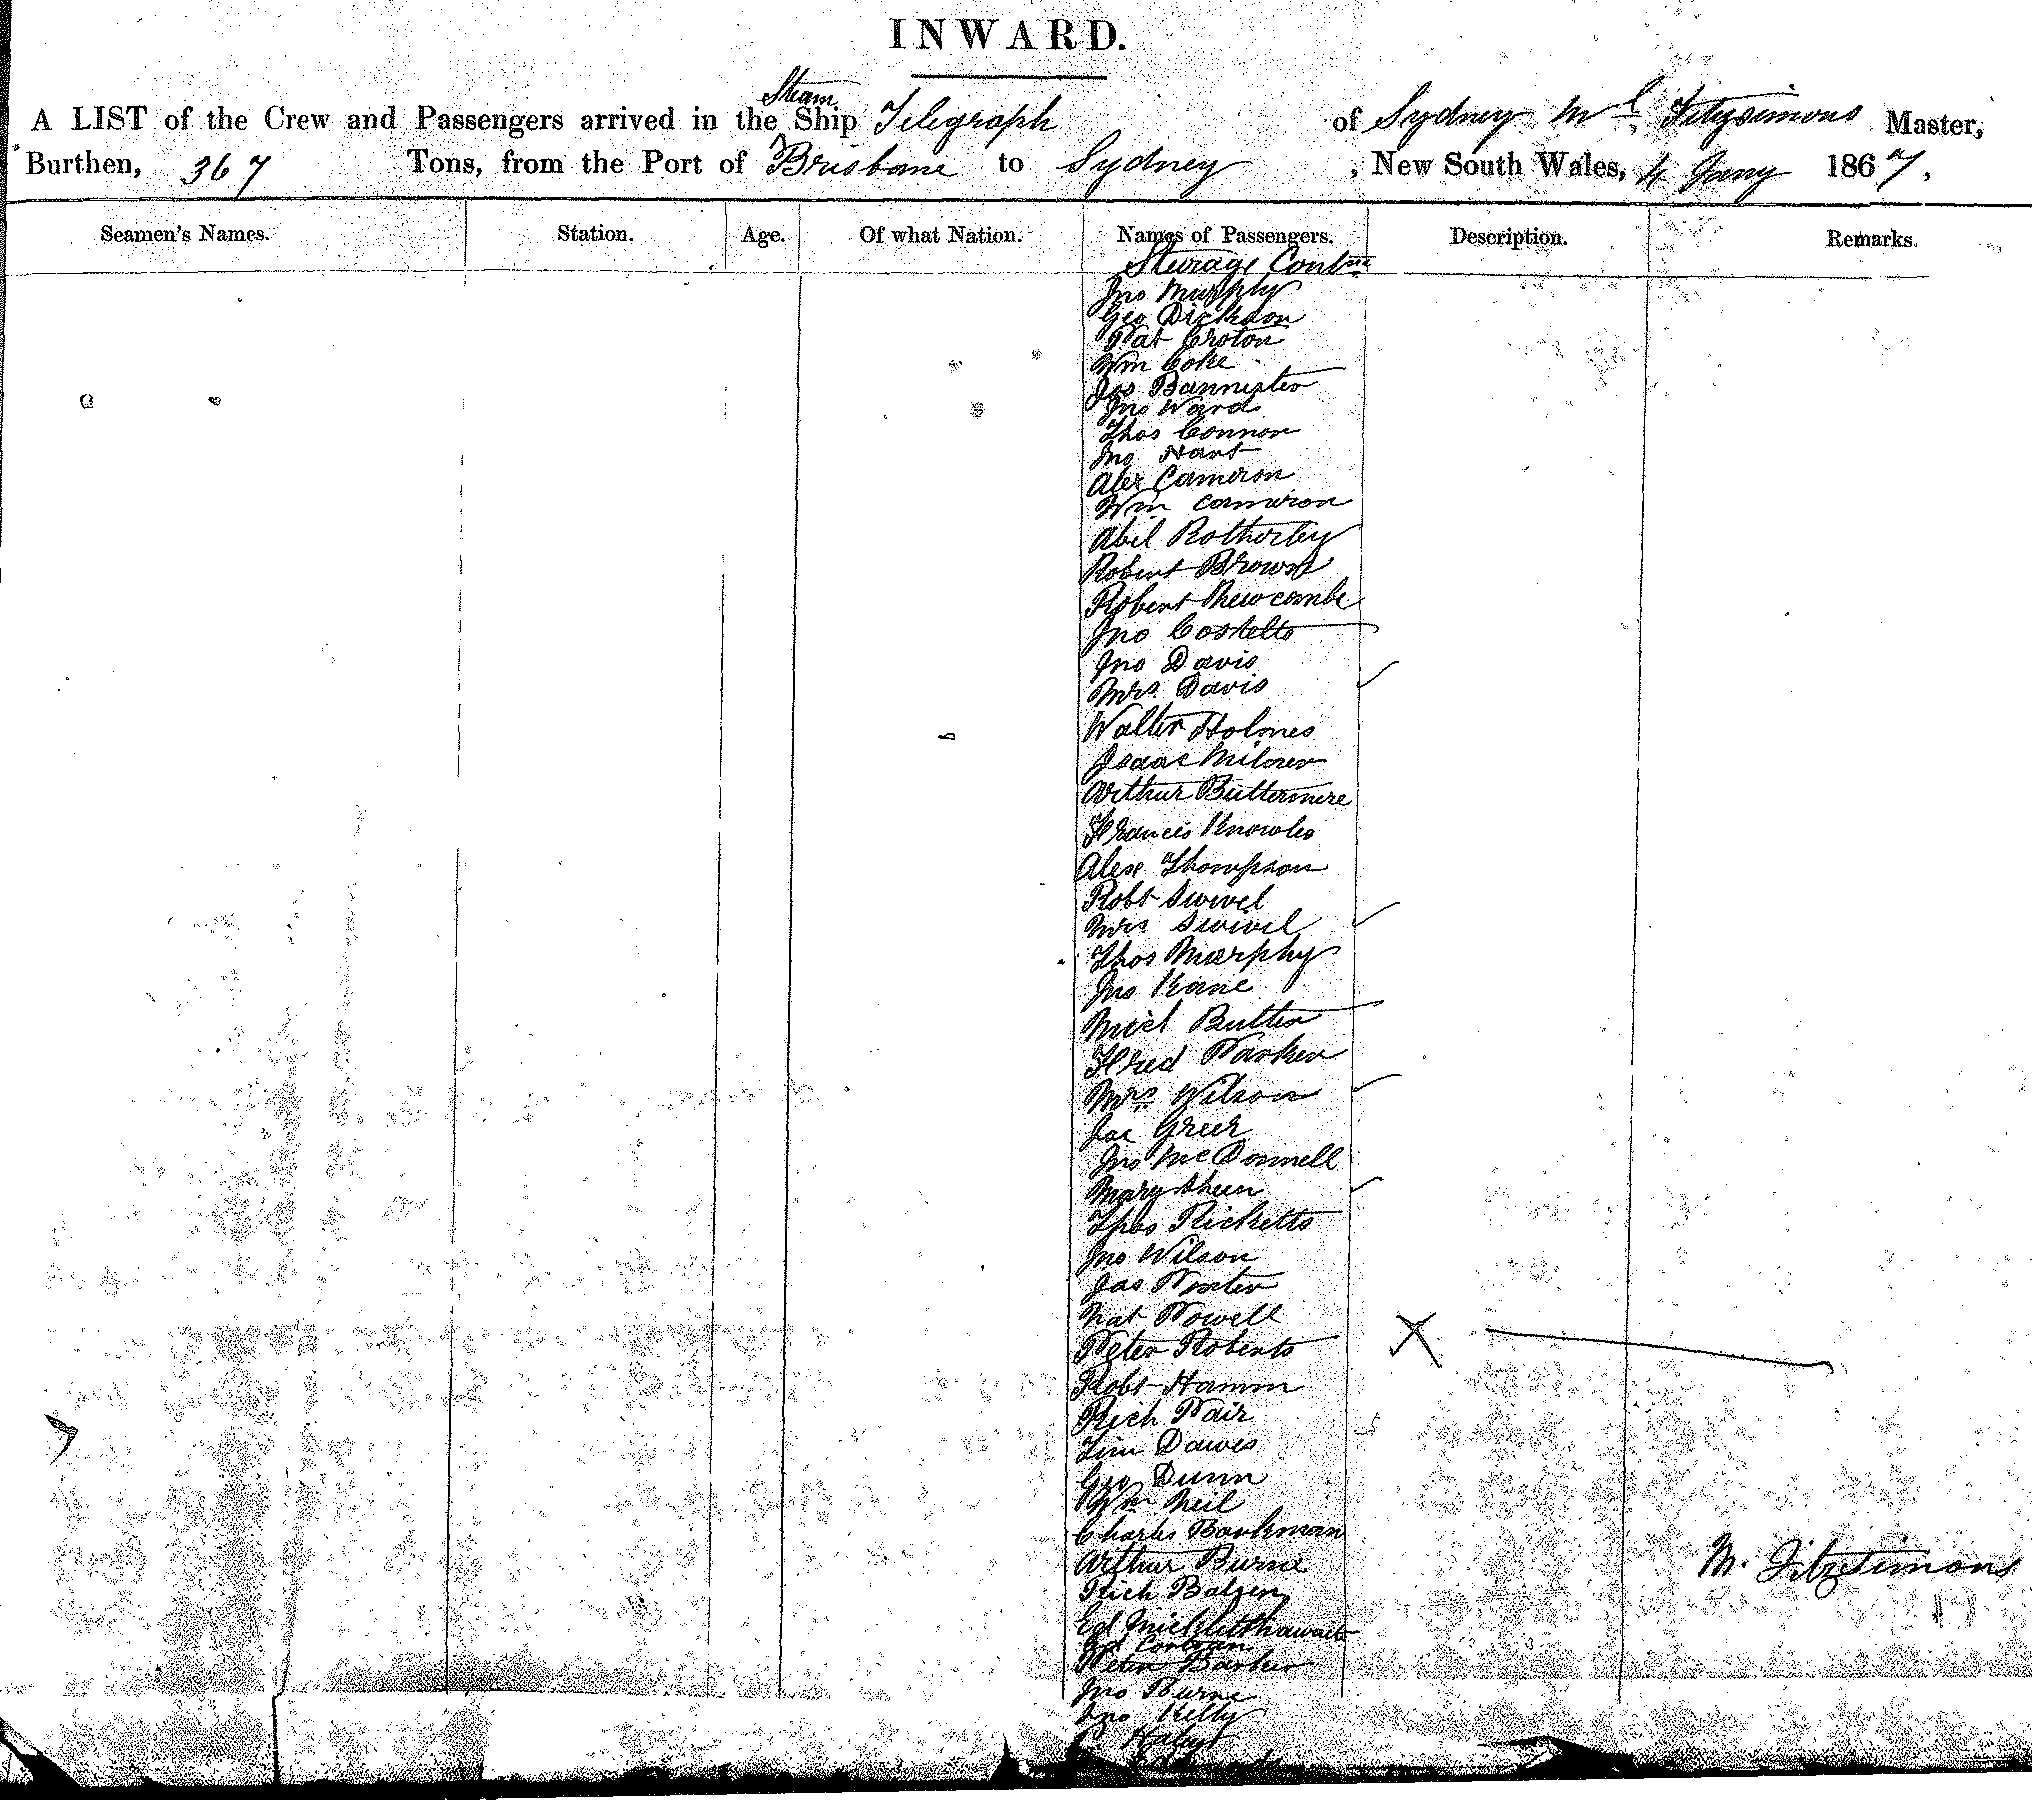 INWARD.
A LIST of the Crew and Passengers arrived in the Steam Ship Telegraph of Sydney Ml. Fitzsimons Master,
Burthen, 367 Tons, from the Port of Brisbane to Sydney, New South Wales, 4 Jany 1867,
Seamen's Names. Station. Age. Of what Nation. Names of Passengers. Description. Remarks.
Steerage Contnd
Jno Murphy
Geo Dickson
Pat Croton
Wm Coke
Jos Bannister
Jno Ward
Thos Connor
Jno Hart
Alex Cameron
Wm Cameron
Abel Rotherby
Robert Brown
Robert Newcombe
Jno Costello
Jno Davis
Mrs Davis
Walter Holmes
Isaac Milner
Arthur Buttermere
Francis Knowles
Alex Thompson
Robt Swivel
Mrs Swivel
Thos Murphy
Jno Kane
Micl Butler
Fred Parker
Mrs Wilson
Jas Greer
Jno McDonnell
Mary Sheen
Thos Ricketts
Jno Wilson
Jas Porter
Nat Powell
Peter Roberts
Robt Hamm
Rich Pair
Tim Dawes
Geo Dunn
Wm Neil
Charles Bankman
Arthur Burne
M. Fitzsimons
Rich Balsen
Ed Micklethawaite
Corboran
Peter Barker
Jno Burne
Jno Kelly